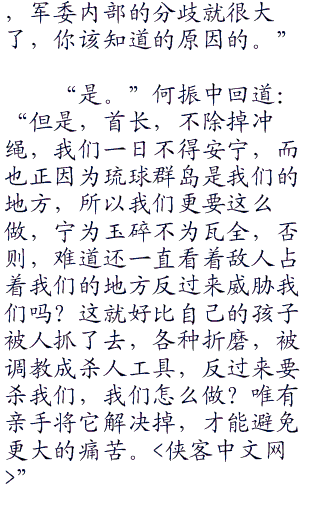 ，军委内部的分歧就很大
了，你该知道的原因的。”
“是。”何振中回道：
“但是，首长，不除掉冲
绳，我们一日不得安宁，而
也正因为琉球群岛是我们的
地方，所以我们更要这么
做，宁为玉碎不为瓦全，否
则，难道还一直看着敌人占
着我们的地方反过来威胁我
们吗？这就好比自己的孩子
被人抓了去，各种折磨，被
调教成杀人工具，反过来要
杀我们，我们怎么做？唯有
亲手将它解决掉，才能避免
更大的痛苦。<侠客中文网
>”